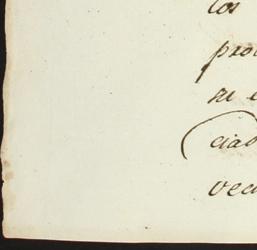 los
pro
su e
cias
vea